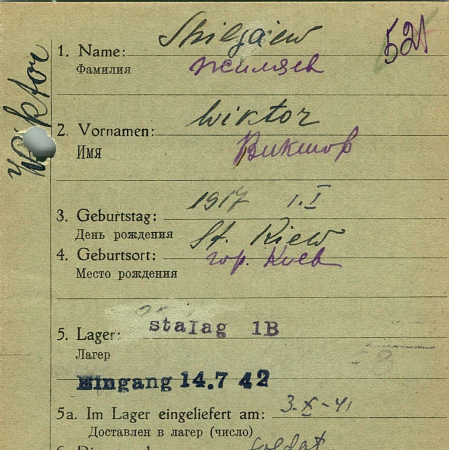 521
Wiktor
1. Name: Shilgaiew
Фамилия Жиляев
2. Vornamen: Wiktor
Имя Виктор
3. Geburtstag: 1917 1.I
День рождения
4. Geburtsort: St. Kiew
Место рождения гор. Киев
5. Lager: stalag 1B
Лагер
Eingang 14.7 42
5a. Im Lager eingeliefert am: 3.X-41
Доставлен в лагер (число)
soldat